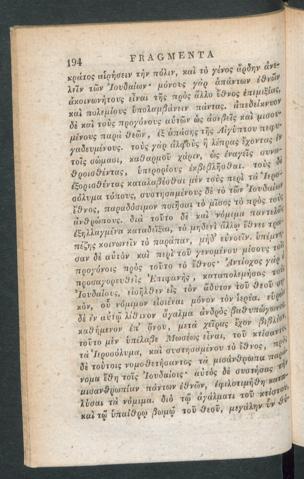 194 FRAGMENTA
κράτος αἱρήσειν τὴν πόλιν, καὶ τὸ γένος ἄρδην ἀνε-
λεῖν τῶν Ἰουδαίων· μόνους γὰρ ἁπάντων ἐθνῶν
ἀκοινωνήτους εἶναι τῆς πρὸς ἄλλο ἔθνος ἐπιμιξίας,
καὶ πολεμίους ὑπολαμβάνειν πάντας. ἀπεδείκνυον
δὲ καὶ τοὺς προγόνους αὐτῶν ὡς ἀσεβεῖς καὶ μισου-
μένους παρὰ θεῶν, ἐξ ἁπάσης τῆς Αἰγύπτου πεφυ-
γαδευμένους. τοὺς γὰρ ἀλφοὺς ἢ λέπρας ἔχοντας ἐν
τοῖς σώμασι, καθαρμοῦ χάριν, ὡς ἐναγεῖς συνα-
θροισθέντας, ὑπερορίους ἐκβεβλῆσθαι. τοὺς δὲ
ἐξορισθέντας καταλαβέσθαι μὲν τοὺς περὶ τὰ Ἱερο-
σόλυμα τόπους, συστησαμένους δὲ τὸ τῶν Ἰουδαίων
ἔθνος, παραδόσιμον ποιῆσαι τὸ μῖσος τὸ πρὸς τοὺς
ἀνθρώπους. διὰ τοῦτο δὲ καὶ νόμιμα παντελῶς
ἐξηλλαγμένα καταδεῖξαι, τὸ μηδενὶ ἄλλῳ ἔθνει τρα-
πέζης κοινωνεῖν τὸ παράπαν, μηδ᾽ εὐνοεῖν. ὑπέμνη-
σαν δὲ αὐτὸν καὶ περὶ τοῦ γενομένου μίσους τοῖς
προγόνοις πρὸς τοῦτο τὸ ἔθνος· Ἀντίοχος γὰρ ὁ
προσαγορευθεὶς Ἐπιφανὴς, καταπολεμήσας τοὺς
Ἰουδαίους, εἰσῆλθεν εἰς τὸν ἄδυτον τοῦ θεοῦ ση-
κὸν, οὗ νόμιμον εἰσιέναι μόνον τὸν ἱερέα. εὑρὼν
δὲ ἐν αὐτῷ λίθινον ἄγαλμα ἀνδρὸς βαθυπώγωνος
καθήμενον ἐπ᾽ ὄνου, μετὰ χεῖρας ἔχον βιβλίον,
τοῦτο μὲν ὑπέλαβε Μωσέως εἶναι, τοῦ κτίσαντος
τὰ Ἱεροσόλυμα, καὶ συστησαμένου τὸ ἔθνος, πρὸς
δὲ τούτοις νομοθετήσαντος τὰ μισάνθρωπα παρά-
νομα ἔθη τοῖς Ἰουδαίοις· αὐτὸς δὲ συστήσας τὴν
μισανθρωπίαν πάντων ἐθνῶν, ἐφιλοτιμήθη κατα-
λῦσαι τὰ νόμιμα. διὸ τῷ ἀγάλματι τοῦ κτίστου
καὶ τῷ ὑπαίθρῳ βωμῷ τοῦ θεοῦ, μεγάλην ὗν